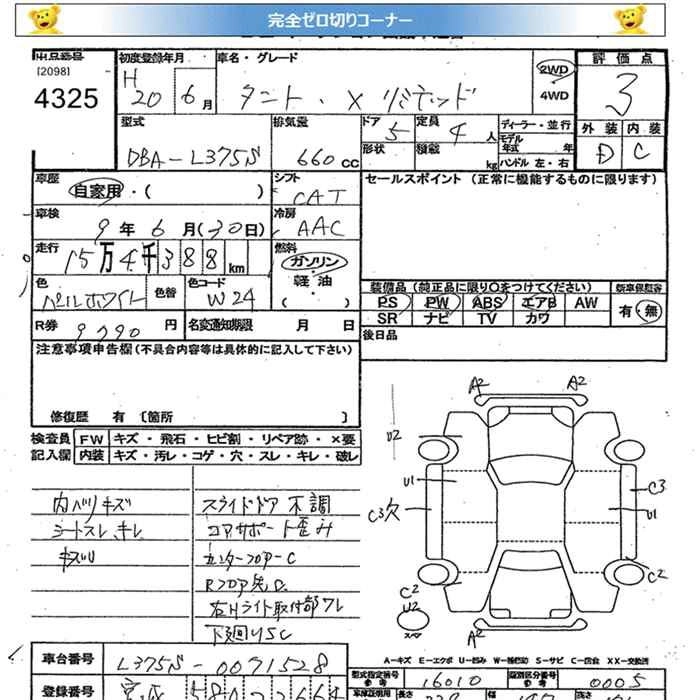 完全ゼロ切りコーナー
出品番号 初度登録年月 車名・グレード 評価点
[2098] 4325 H 20 6月 タント・Xリミテッド 2WD 4WD 3
外装 内装
D C
型式 排気量 ドア 定員 ディーラー・並行
DBA-L375S 660cc 5 4人 モデル年式 年
形状 積載 kg ハンドル 左・右
車歴 シフト セールスポイント (正常に機能するものに限ります)
自家用・( ) CAT
車検 冷房
9年 6月(30日) AAC
走行 燃料
15万4千388km ガソリン
軽油
( )
色 色替 色コード
パールホワイト W24
装備品 (純正品に限り○をつけてください) 新車保証書
PS PW ABS エアB AW 有・無
SR ナビ TV カワ
R券 9790円 名変通知期限 月 日
後日品
注意事項申告欄(不具合内容等は具体的に記入して下さい)
修復歴 有 〔箇所 〕
検査員 FW キズ・飛石・ヒビ割・リペア跡・×要
記入欄 内装 キズ・汚レ・コゲ・穴・スレ・キレ・破レ
内ハリキズ
シートスレ、キレ
キズリ
スライドドア不調
コアサポート歪み
センターフロアーC
Rフロア先D
右Hライト取付部ワレ
下廻りSC
A2 A2
U2
U1
C3欠
C3
U1
C2
C2
U2
A2
A-キズ E-エクボ U-凹み W-補修跡 S-サビ C-腐食 XX-交換済
車台番号 L375S-0071528
型式指定番号 16010 類別区分番号 0005
登録番号